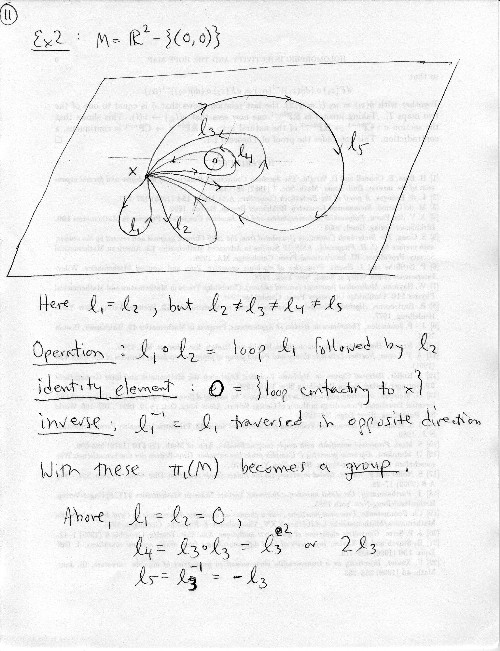 11
Ex2 : M = ℝ² - {(0,0)}
l₃
l₄
l₅
x
l₁
l₂
Here l₁ = l₂ , but l₂ ≠ l₃ ≠ l₄ ≠ l₅
Operation : l₁ ∘ l₂ = loop l₁ followed by l₂
identity element : 0 = {loop contracting to x}
inverse : l₁⁻¹ = l₁ traversed in opposite direction
With these π₁(M) becomes a group.
Above, l₁ = l₂ = 0 ,
l₄ = l₃ ∘ l₃ = l₃² or 2l₃
l₅ = l₃⁻¹ = - l₃